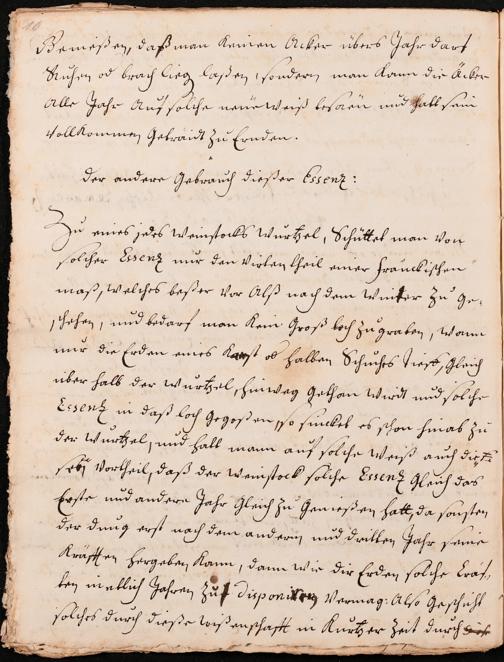 10
Beweißen, daß man keinen Acker übers Jahr darf
Ruhen od brach lieg laßen, sondern man kann die Äcker
Alle Jahr auf solche neüe weiß besäen und hatt sein
vollkommen Getraidt Zu Ernden.
der andere Gebrauch dießer Essenz:
Zu eines jedes weinstocks wurtzel, Schüttet man von
solcher Essenz nur den Virten theil einer fränckischen
maß, welches beßer vor Alß nach dem Winter Zu ge-
schehen, und bedarf man kein Groß loch Zu graben, wann
nur die Erden eines od halben Schuchs tieff, Gleich
über halb der wurtzel, hinweg gethan wirdt und solche
Essenz in daß loch gegoßen, so sincket es schon hinab Zu
der wurtzel, und hatt mann auf solche weiß auch
Vortheil, daß der weinstock solche Essenz Gleich das
Erste und andere Jahr Gleich Zu Genießen hatt, da sonsten
der dung erst nach dem andern und dritten Jahr seine
Kräfften hergeben kann, dann wie die Erden solche
in etlich Jahren Zu disponiren vermag: Also Geschicht
solches durch dieße wißenschafft in kurtzer Zeit durch